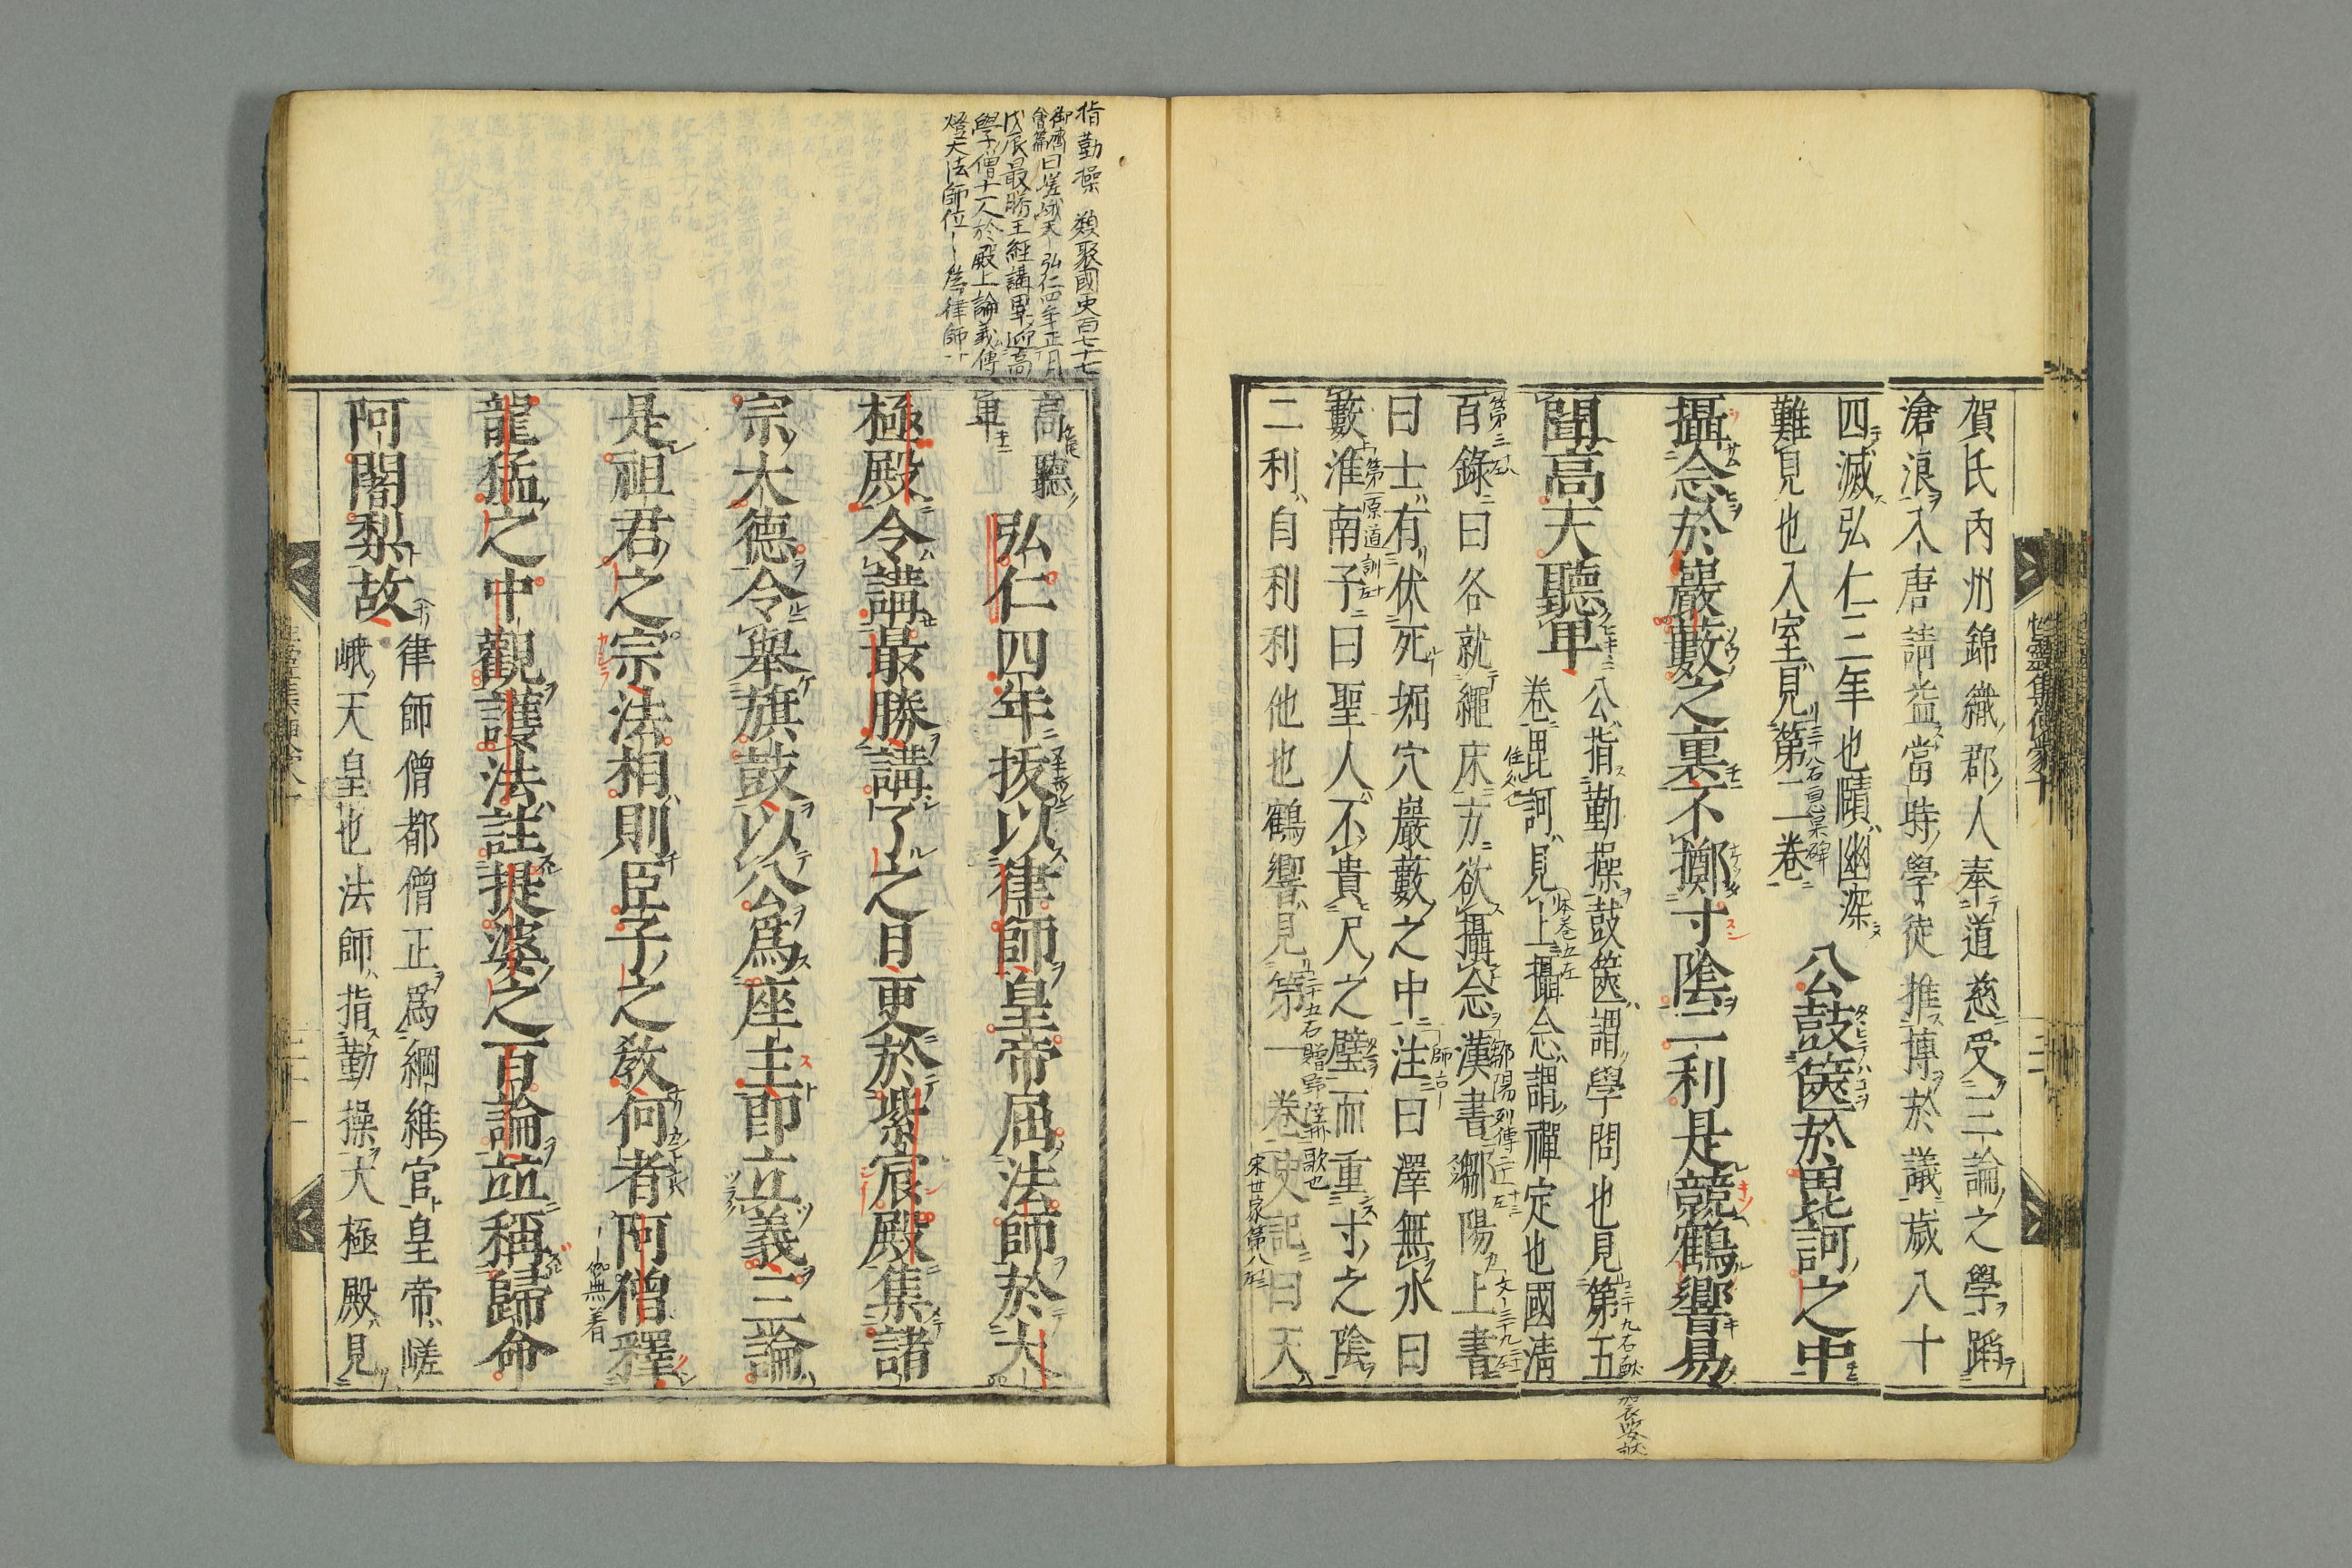 賀氏內州錦織郡人奉道慈受三論之學蹈
滄浪入唐請益當時學徒推博於議歲八十
四滅弘仁三年也賾幽深
難見也入室見第二卷
公鼓篋於毘訶之中
攝念於巖藪之裏不擲寸陰二利是競鶴響易
聞高天聽卑
公指勤操鼓篋謂學問也見第五
卷毘訶見上攝念謂禪定也國清
百錄曰各就繩床方欲攝念漢書鄒陽上書
曰士有伏死堀穴巖藪之中注曰澤無水曰
藪淮南子曰聖人不貴尺之璧而重寸之陰
二利自利利他也鶴響見第一卷史記曰天
高聽
卑
弘仁四年拔以律師皇帝屈法師於大
極殿令講最勝講了之日更於紫宸殿集諸
宗大德令舉旗鼓以公爲座主卽立義三論
是祖君之宗法相則臣子之教何者阿僧釋
龍猛之中觀護法註提婆之百論並稱歸命
阿闍梨故
律師僧都僧正爲綱維官皇帝嵯
峨天皇也法師指勤操大極殿見
指勤操 類聚國史百七十七
御齋會篇曰嵯峨天弘仁四年正月
戊辰最勝王經講畢迎高
學僧十一人於殿上論義傳
燈大法師位 爲律師